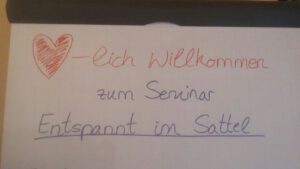 -lich Willkommen
zum Seminar
Entspannt im Sattel